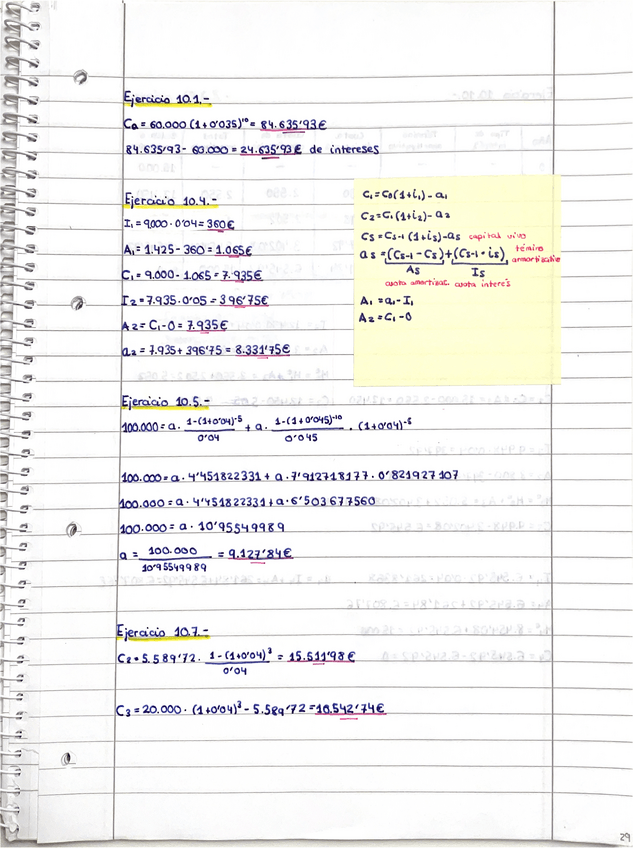 Ejercicio 10.1.-
Ca = 60.000 (1+0'035)¹⁰ = 84.635'93€
84.635'93 - 60.000 = 24.635'93€ de intereses
Ejercicio 10.4.-
I₁ = 9.000 · 0'04 = 360€
A₁ = 1.425 - 360 = 1.065€
C₁ = 9.000 - 1.065 = 7.935€
I₂ = 7.935 · 0'05 = 396'75€
A₂ = C₁ - 0 = 7.935€
a₂ = 7.935 + 396'75 = 8.331'75€
C₁ = C₀ (1+i₁) - a₁
C₂ = C₁ (1+i₂) - a₂
Cs = Cs-1 (1+is) - as capital vivo
as = (Cs-1 - Cs) + (Cs-1 · is) término amortizativo
As Is
cuota amortizac. cuota interés
A₁ = a₁ - I₁
A₂ = C₁ - 0
Ejercicio 10.5.-
100.000 = a · 1-(1+0'04)⁻⁵ / 0'04 + a · 1-(1+0'045)⁻¹⁰ / 0'045 · (1+0'04)⁻⁵
100.000 = a · 4'451822331 + a · 7'912718177 · 0'821927107
100.000 = a · 4'451822331 + a · 6'503677560
100.000 = a · 10'95549989
a = 100.000 / 10'95549989 = 9.127'84€
Ejercicio 10.7.-
C₂ = 5.589'72 · 1-(1+0'04)³ / 0'04 = 15.511'98€
C₃ = 20.000 · (1+0'04)³ - 5.589'72 = 10.542'74€
29